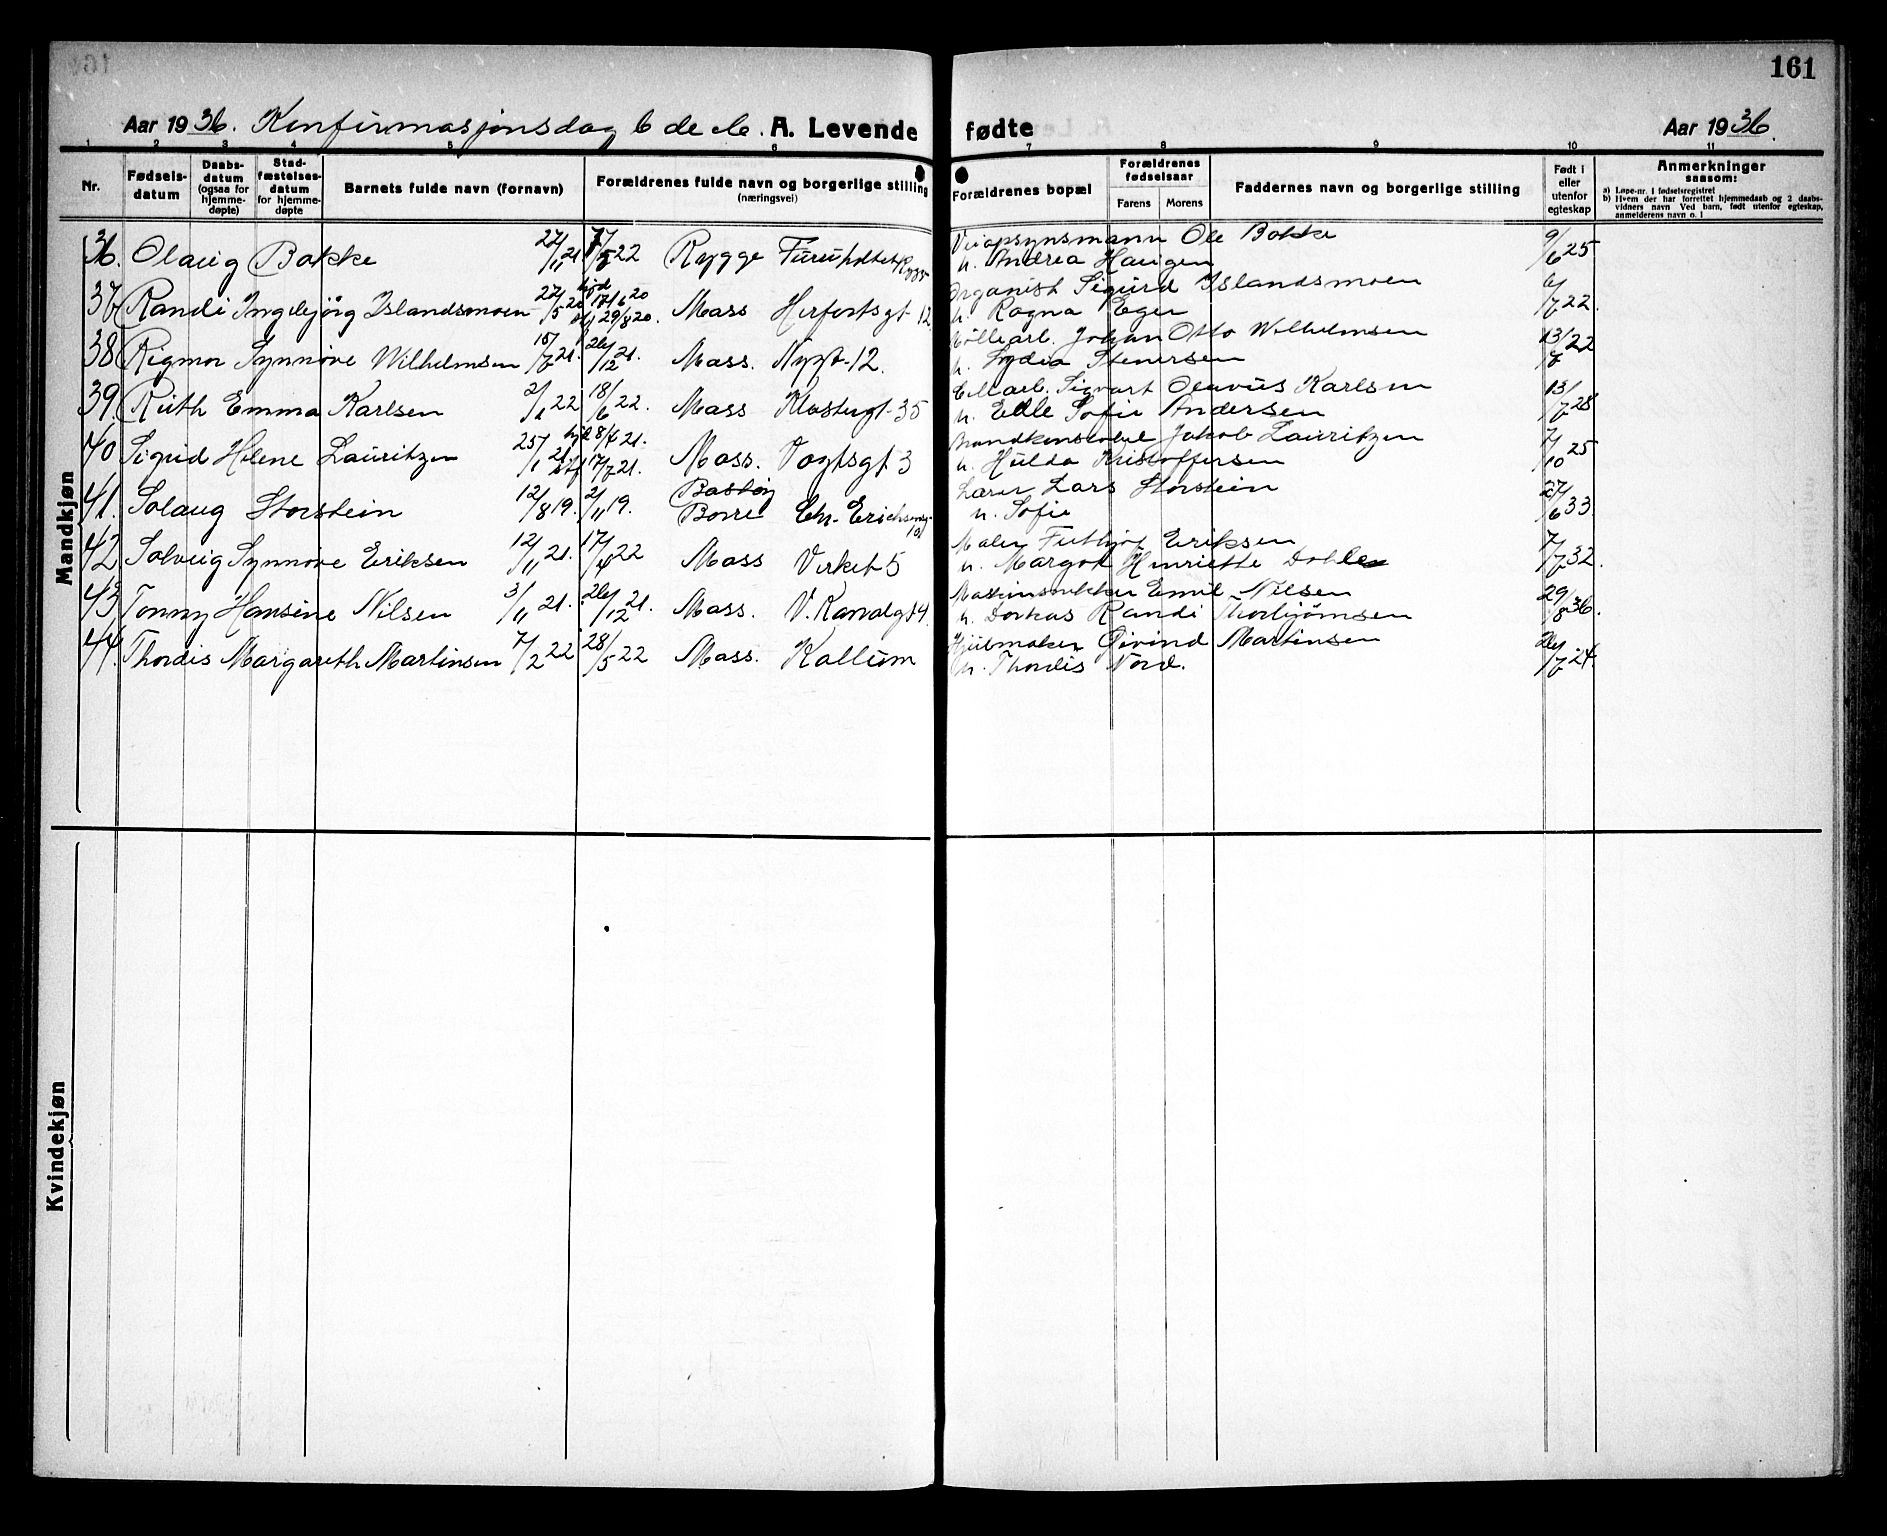 161
Aar 1936. Konfirmasjonsdag 6 de A. Levende fødte Aar 1936.
1 2 3 4 5 6 7 8 9 10 11
Nr. Fødselsdatum Daabsdatum (ogsaa for hjemmedøpte) Stadfæstelsesdatum for hjemmedøpte Barnets fulde navn (fornavn) Forældrenes fulde navn og borgerlige stilling (næringsvei) Forældrenes bopæl Forældrenes fødselsaar Farens Morens Faddernes navn og borgerlige stilling Født i eller utenfor egteskap Anmerkninger saasom:
a) Løpe-nr. i fødselsregistret
b) Hvem der har forrettet hjemmedaab og 2 daabsvidners navn Ved barn, født utenfor egteskap, anmelderens navn o. l
Mandkjøn
36. Olaug Bakke 27/11 21 7/5 22 Rygge Furuholtet Rygge Veiopsynsmann Ole Bakke 9/6 25
u. Andrea Haugen
37 Randi Ingebjørg Islandsmoen 27/5 20 hjd 17/6 20 29/8 20. Mass Herfortsgt 12 Organist Sigurd Islandsmoen 6/7 22.
u. Ragna Eger
38 Rigmor Synnøve Wilhelmsen 21. 26/12 21. Mass. Nygt-12. Møllearb. Johan Otto Wilhelmsen 13/8 22
u. Lydia Stenersen
39. Ruth Emma Karlsen 2/1 22 18/6 22. Mass Klostergt-35 Cellarb. Sigvart Olavus Karlsen 13/7 28
u. Edle Sofie Andersen
40 Sigrid Helene Lauritzen 25/1 21 hjd 8/4 21. stf 17/7 21. Mass. Vogtsgt 3 Jakob Lauritzen 7/10 25
u. Hulda Kristoffersen
41. Solaug Storstein 12/8 19. 2/11 19. Bastøy Borre Chr. Erichsensg. 10 Lærer Lars Storstein 27/6 33.
u. Sofie
42 Solveig Synnøve Eriksen 12/11 21. 17/4 22 Mass Verket 5 Maler Fritjof Eriksen 7/7 32.
u. Margot Henriette Dahle
43 Tonny Hansine Nilsen 3/11 21. 26/12 21. Mass. V. Kanalgt 4. Emil Nilsen 29/8 36.
u. Dorkas Randi Thorbjørnsen
44. Thordis Margareth Martinsen 7/2 22 28/5 22 Mass. Kallum Hjulmaker Øivind Martinsen 24.
u. Thordis Nord.
Kvindekjøn